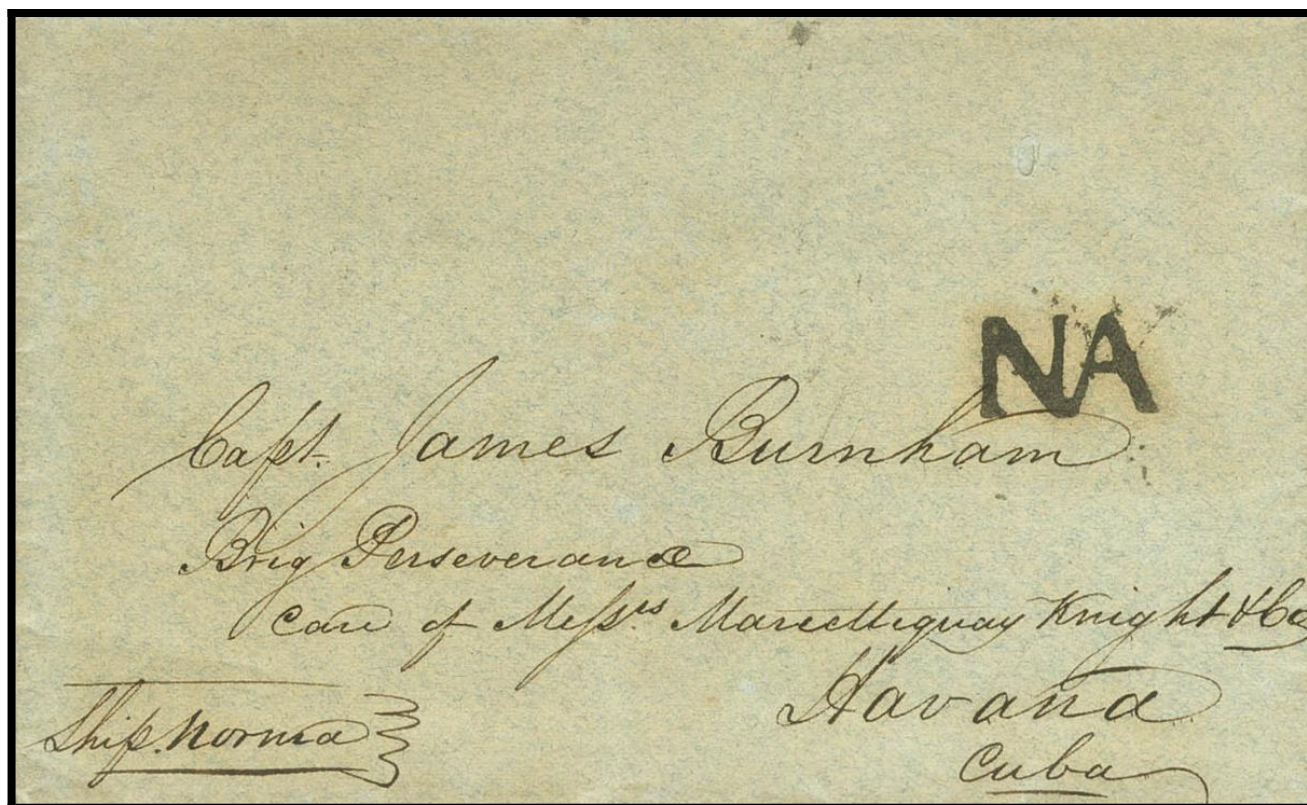 NA
Capt. James Burnham
Brig Perseverance
Care of Messrs. Knight & Co
Havana
Cuba
Ship. Norma